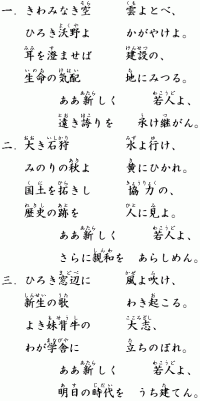 一．きわみなき空　雲よとべ、
ひろき沃野よ　かがやけよ。
耳を澄ませば　建設の、
生命の気配　地にみつる。
ああ新しく　若人よ、
遠き誇りを　承け継がん。
二．大き石狩　水よ行け、
みのりの秋よ　黄にひかれ。
国土を拓きし　協力の、
歴史の跡を　人に見よ。
ああ新しく　若人よ、
さらに親和を　あらしめん。
三．ひろき窓辺に　風よ吹け、
新生の歌　わき起こる。
よき妹背牛の　大志、
わが学舎に　立ちのぼれ。
ああ新しく　若人よ、
明日の時代を　うち建てん。